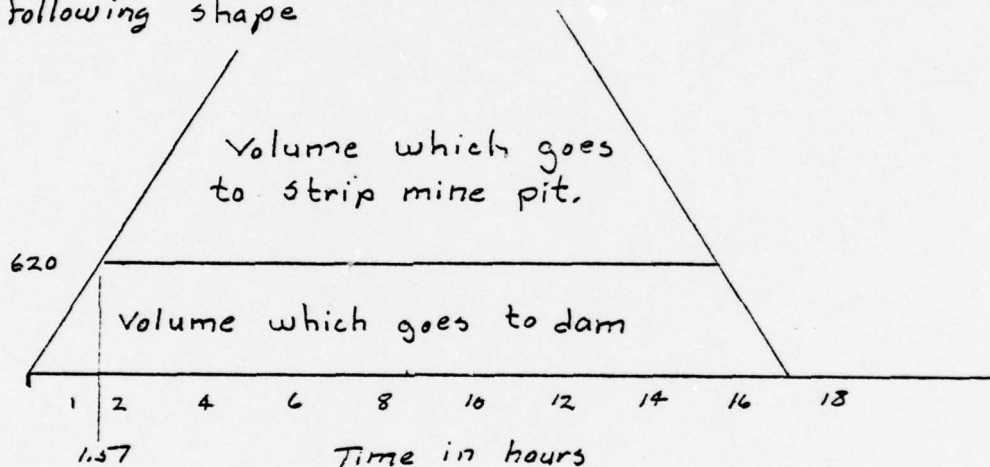 following shape
Volume which goes
to strip mine pit.
620
Volume which goes to dam
1 2 4 6 8 10 12 14 16 18
1.57 Time in hours